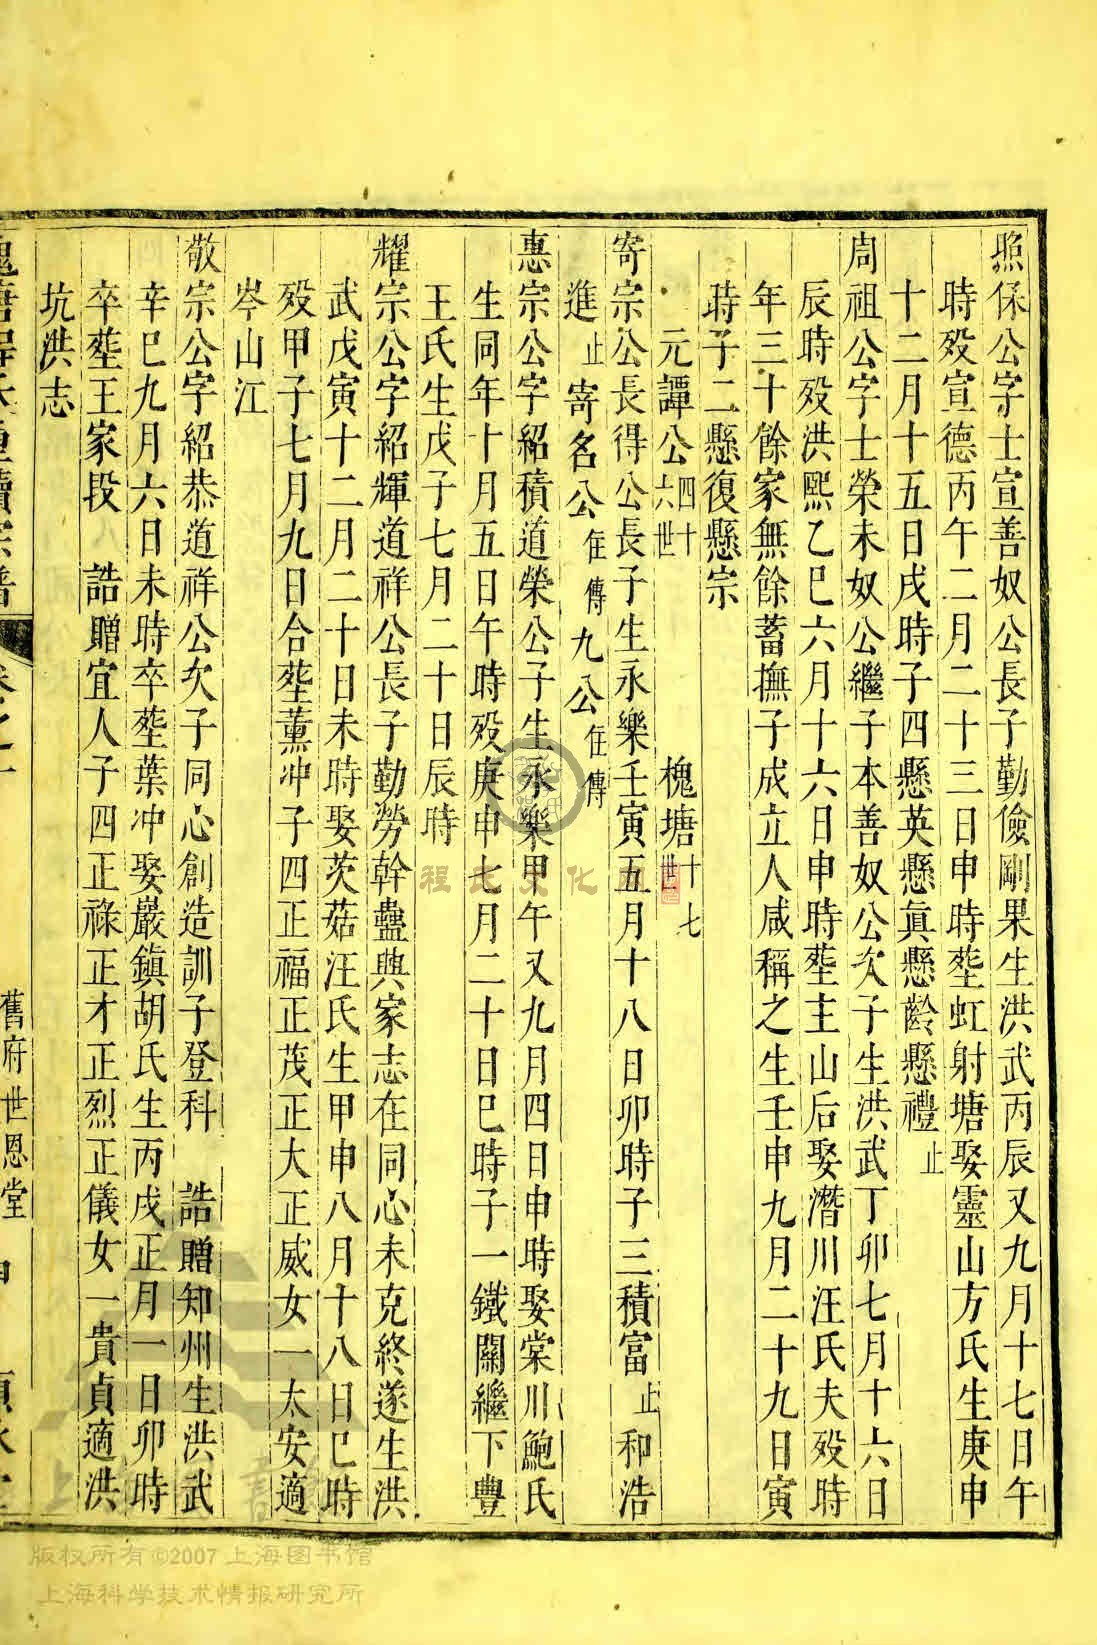 照保公字士宣善奴公長子勤儉剛果生洪武丙辰又九月十七日午
時歿宣德丙午二月二十三日申時塟虹射塘娶靈山方氏生庚申
十二月十五日戌時子四懸英懸眞懸齡懸禮止
周祖公字士榮未奴公繼子本善奴公次子生洪武丁卯七月十六日
辰時歿洪熙乙巳六月十六日申時塟主山后娶潛川汪氏夫歿時
年三十餘家無餘蓄撫子成立人咸稱之生壬申九月二十九日寅
時子二懸復懸宗
元譚公四十六世 槐塘十七世
寄宗公長得公長子生永樂壬寅五月十八日卯時子三積富止和浩
進止寄名公在傳九公在傳
惠宗公字紹積道榮公子生永樂甲午又九月四日申時娶棠川鮑氏
生同年十月五日午時歿庚申七月二十日巳時子一鐵關繼下豐
王氏生戊子七月二十日辰時
耀宗公字紹輝道祥公長子勤勞幹蠱興家志在同心未克終遂生洪
武戊寅十二月二十日未時娶茨菇汪氏生甲申八月十八日巳時
歿甲子七月九日合塟薰冲子四正福正茂正大正威女一太安適
岑山江
敬宗公字紹恭道祥公次子同心創造訓子登科 誥贈知州生洪武
辛巳九月六日未時卒塟葉冲娶嚴鎮胡氏生丙戌正月一日卯時
卒塟王家段 誥贈宜人子四正祿正才正烈正儀女一貴貞適洪
坑洪志
槐塘程氏重續宗譜 卷之十 舊府世恩堂
程氏文化
版权所有©2007上海图书馆
上海科学技术情报研究所